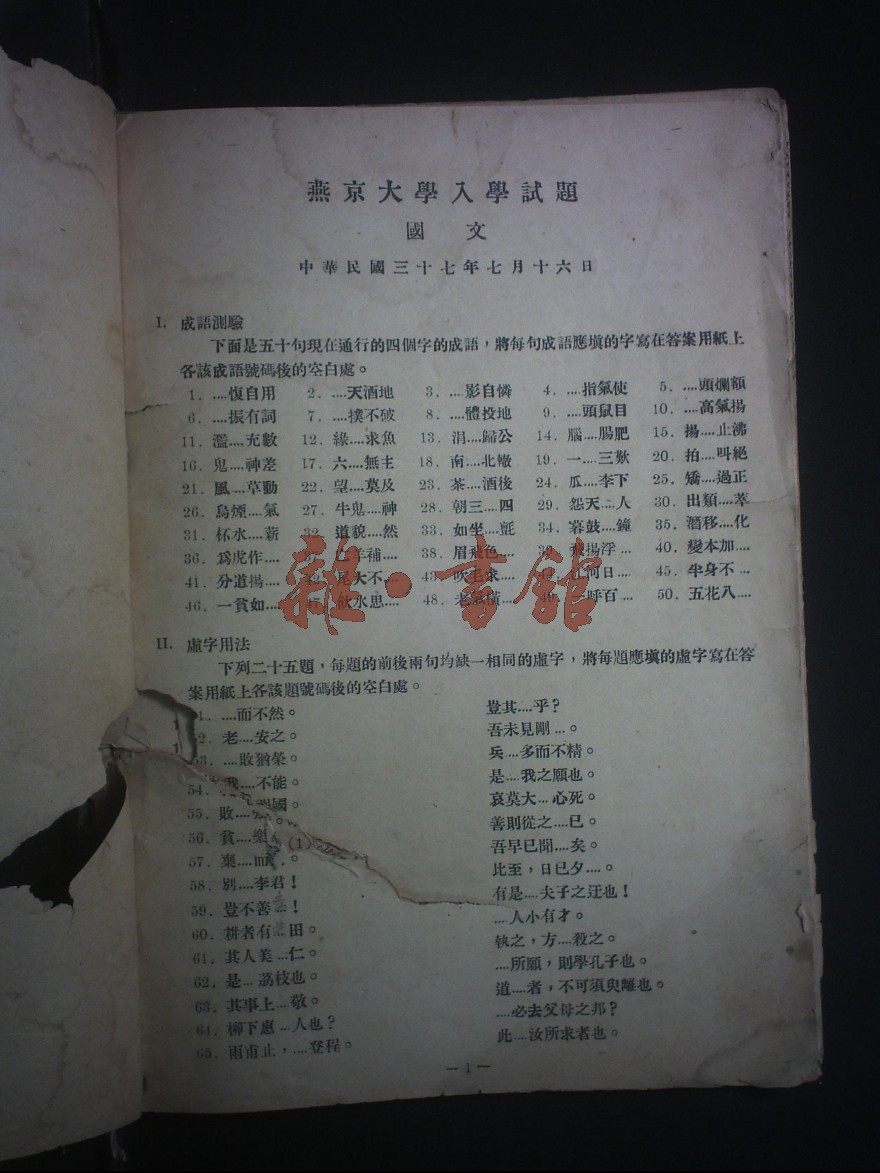 燕京大學入學試題
國文
中華民國三十七年七月十六日
I. 成語測驗
下面是五十句現在通行的四個字的成語，將每句成語應塡的字寫在答案用紙上
各該成語號碼後的空白處。
1. ....愎自用 2. ....天酒地 3. ....影自憐 4. ....指氣使 5. ....頭爛額
6. ....振有詞 7. ....撲不破 8. ....體投地 9. ....頭鼠目 10. ....高氣揚
11. 濫....充數 12. 緣....求魚 13. 涓....歸公 14. 腦....腸肥 15. 揚....止沸
16. 鬼....神差 17. 六....無主 18. 南....北轍 19. 一....三歎 20. 拍....叫絕
21. 風....草動 22. 望....莫及 23. 茶....酒後 24. 瓜....李下 25. 矯....過正
26. 烏煙....氣 27. 牛鬼....神 28. 朝三....四 29. 怨天....人 30. 出類....萃
31. 杯水....薪 32. 道貌....然 33. 如坐....氈 34. 暮鼓....鐘 35. 潛移....化
36. 爲虎作.... 亡羊補.... 38. 眉飛色.... 揚浮.... 40. 變本加....
41. 分道揚.... 尾大不.... 43. 吹毛求.... 江河日.... 45. 半身不...
46. 一貧如.... 飲水思.... 48. 老 橫.... 呼百... 50. 五花八....
雜·書館
II. 虛字用法
下列二十五題，每題的前後兩句均缺一相同的虛字，將每題應塡的虛字寫在答
案用紙上各該題號碼後的空白處。
....而不然。 豈其....乎？
52. 老....安之。 吾未見剛...。
....敗猶榮。 兵....多而不精。
54. 我....不能。 是....我之願也。
55. 敗.... 國。 哀莫大...心死。
56. 貧....樂 善則從之....已。
(1)
57. 棄....而 。 吾早已聞....矣。
58. 別....李君！ 比至，日已夕....。
59. 豈不善 ！ 有是....夫子之迂也！
60. 耕者有 田。 ....人小有才。
61. 其人美...仁。 執之，方....殺之。
62. 是...荔枝也。 ....所願，則學孔子也。
63. 其事上...敬。 道....者，不可須臾離也。
64. 柳下惠...人也？ ....必去父母之邦？
65. 雨甫止，....登程。 此....汝所求者也。
— 1 —